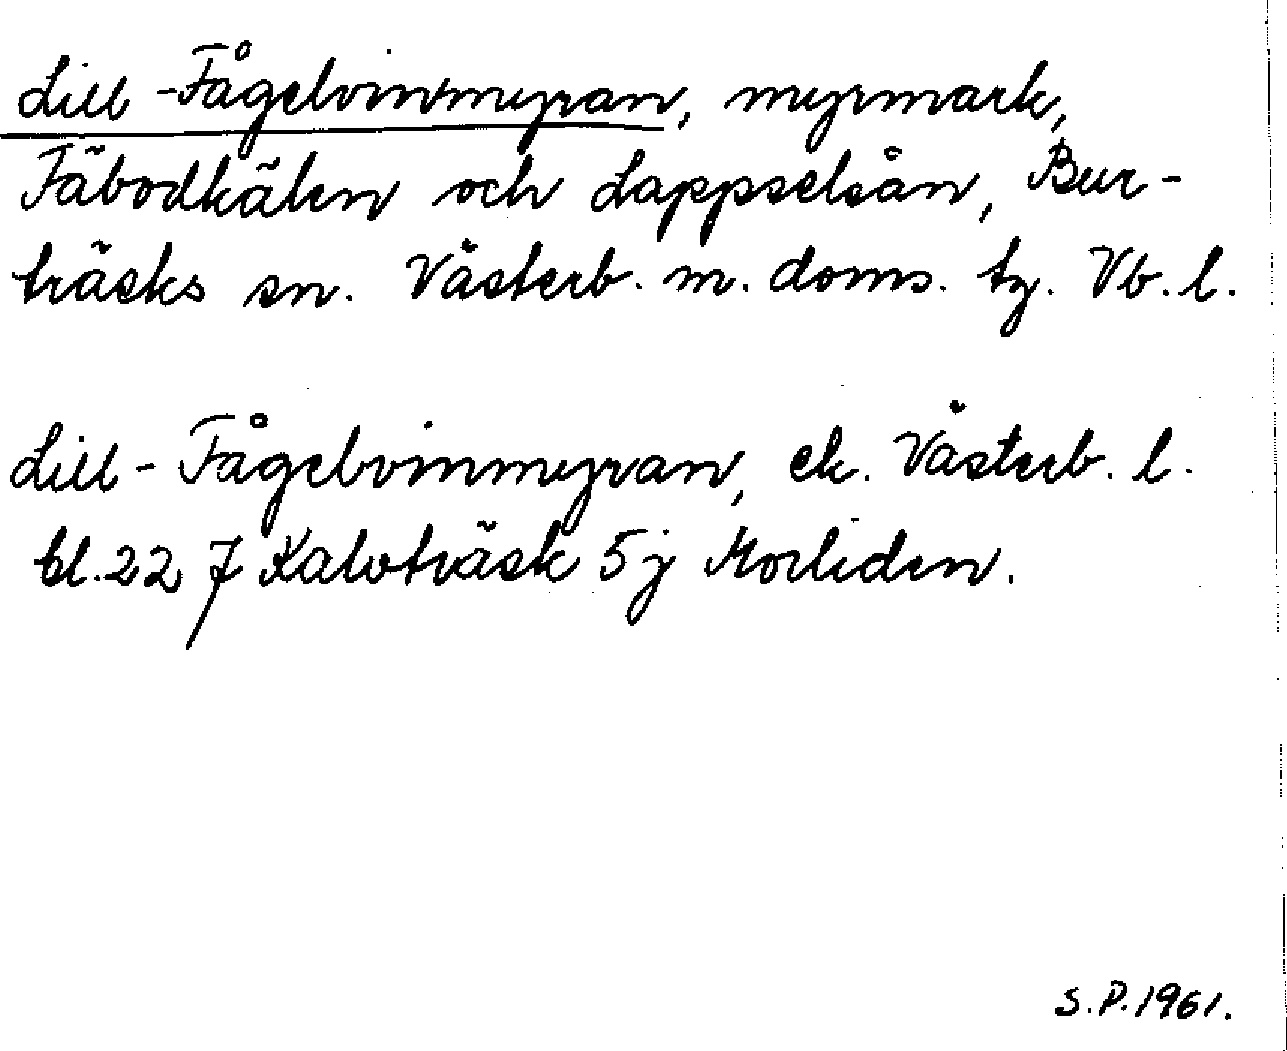 Lill-Fågelvinmyran, myrmark,
Fäbodkälen och Lappselsån, Bur-
träsks sn. Västerb. m. doms. tg. Vb. l.
Lill-Fågelvinmyran, ek. Västerb. l.
bl. 22 J Kalvträsk 5j Morliden.
S.P. 1961.